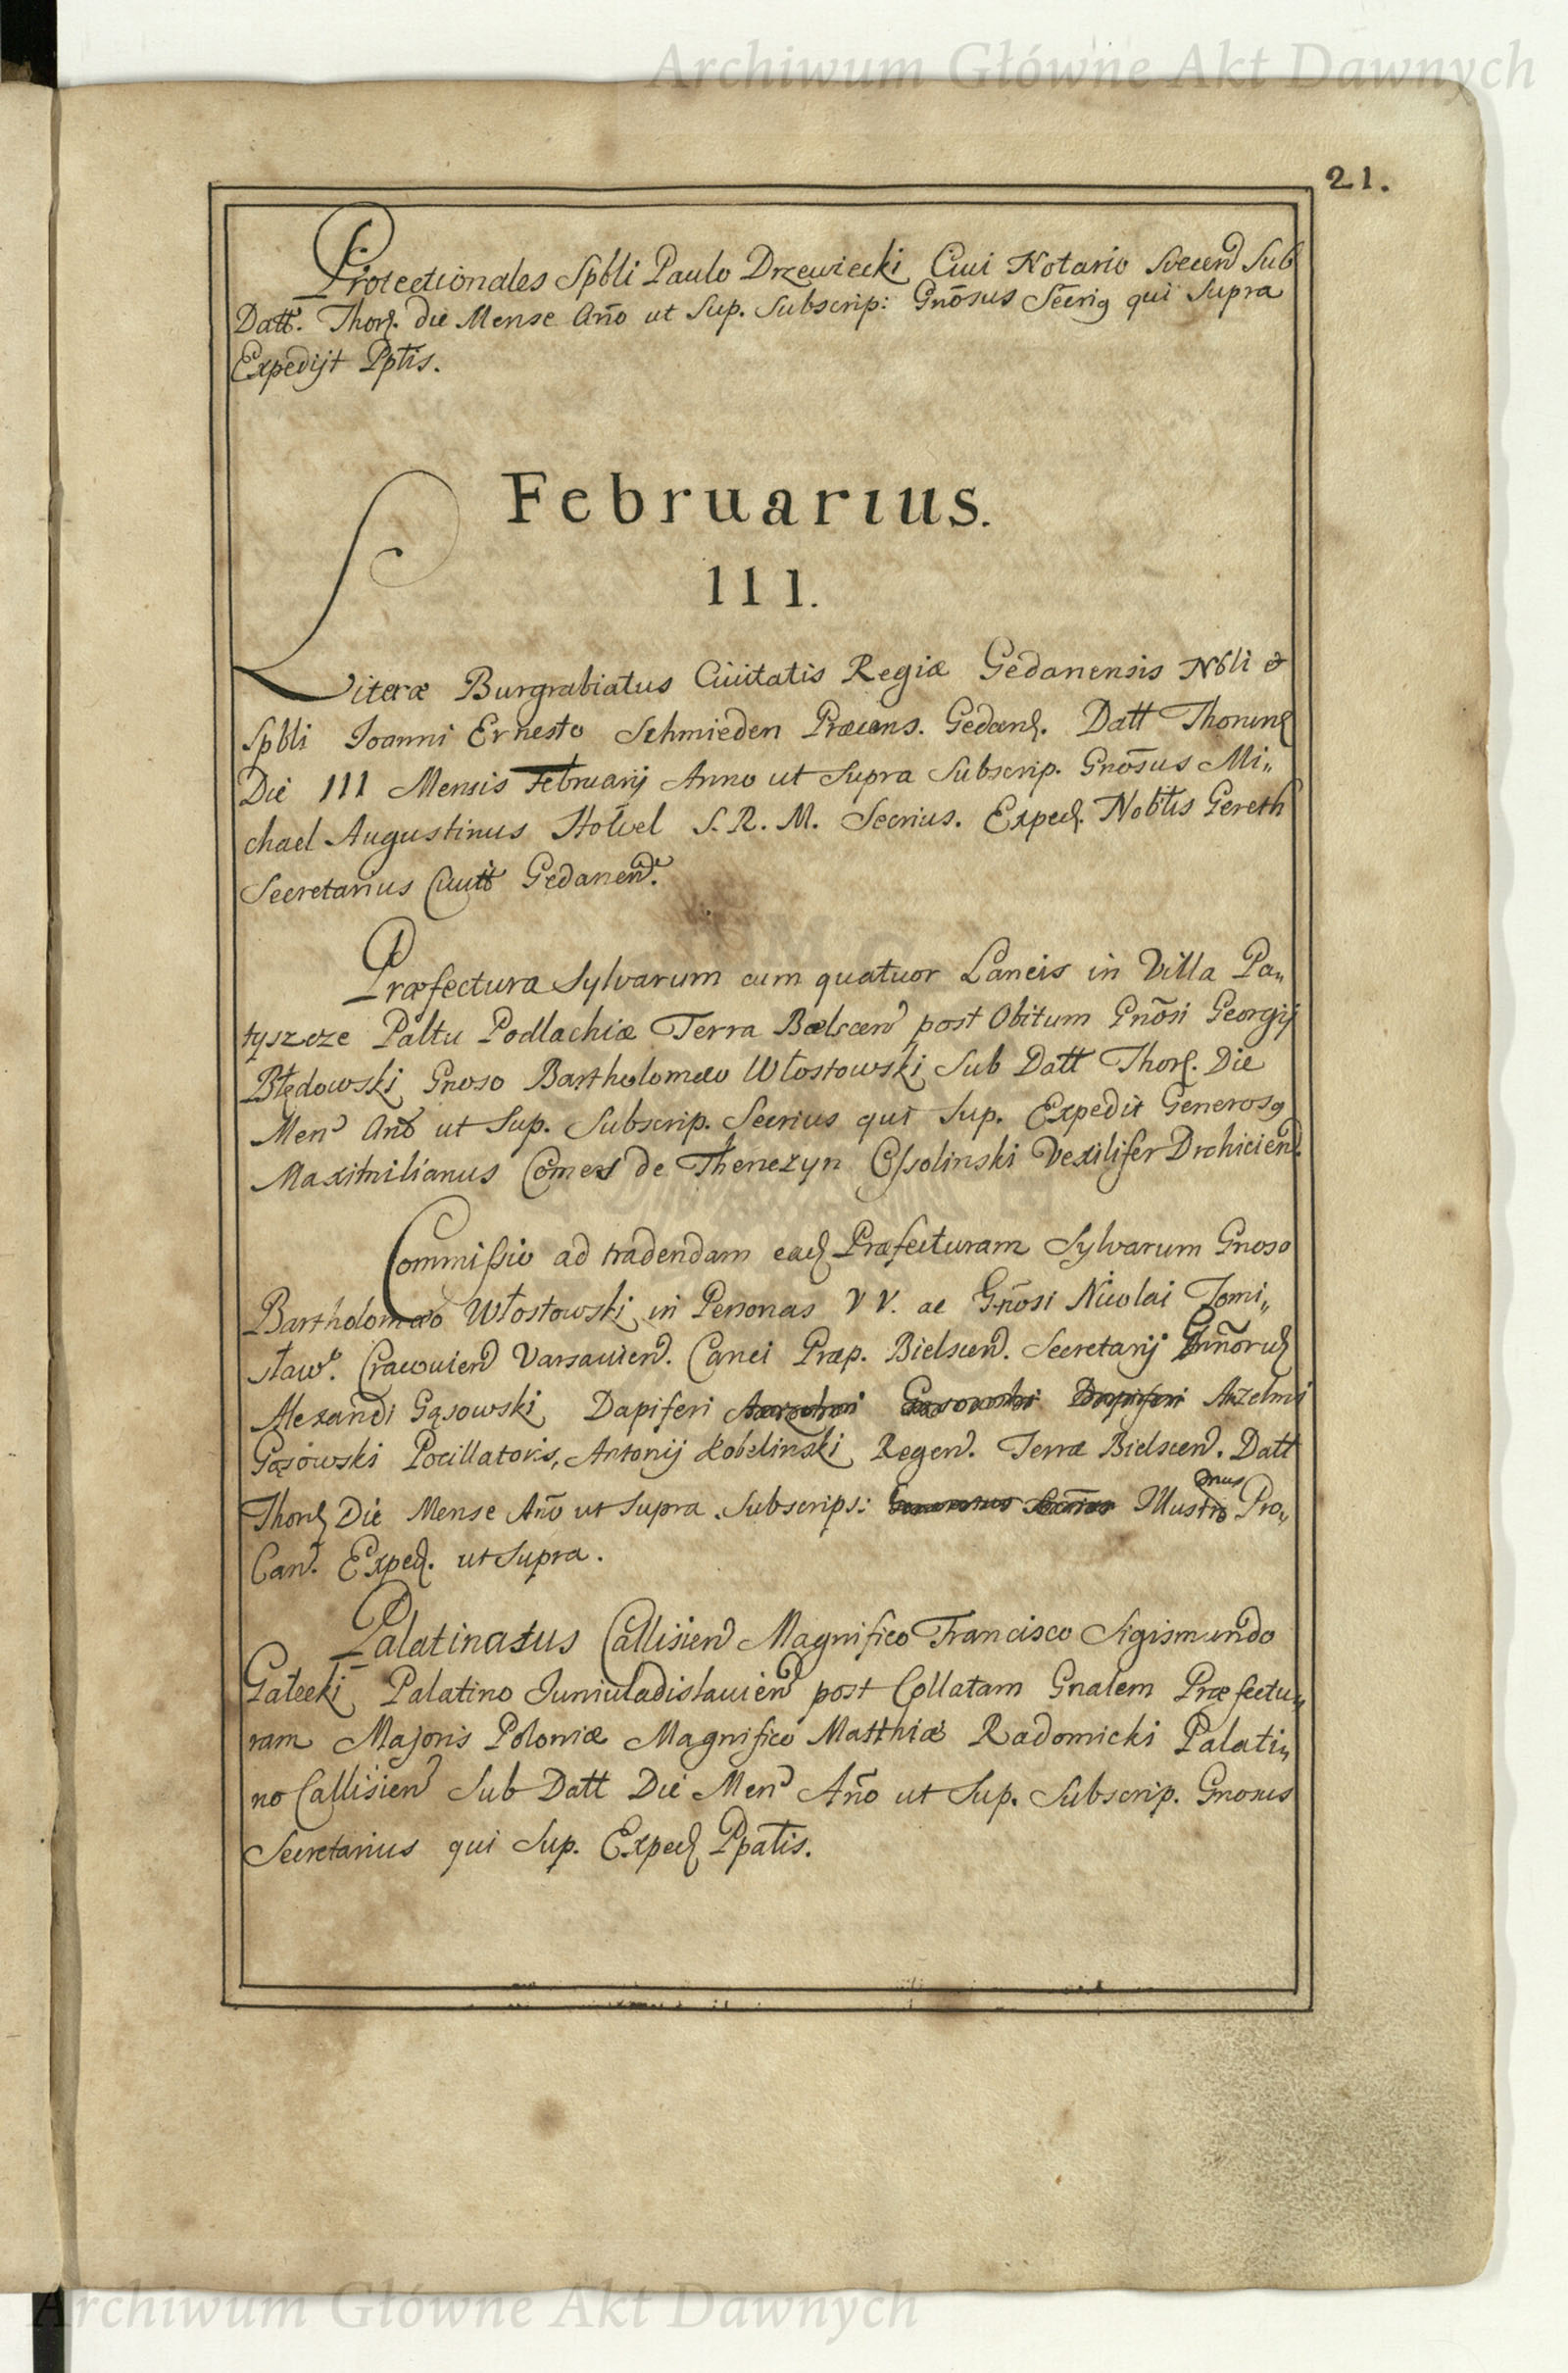 Archiwum Główne Akt Dawnych
21.
Protectionales Spbli Paulo Drzewiecki Civi Notario Svecen Sub
Datt. Thor. die Mense Año ut Sup. Subscrip: Gnõsus Secrig qui Supra
Expedijt Pptis.
Februarius.
III.
Literæ Burgrabiatus Civitatis Regiæ Gedanensis Nbli &
Spbli Ioanni Ernesto Schmieden Præcons. Gedan. Datt Thorun
Die III Mensis Februarij Anno ut Supra Subscrip. Gnõsus Mi„
chael Augustinus Hövel S. R. M. Secrius. Exped. Nobtis Gereth
Secretarius Civitt Gedanen.
Præfectura Sylvarum cum quatuor Laneis in Villa Pa„
tyszcze Paltu Podlachiæ Terra Bœlscen post Obitum Gnõsi Georgij
Błędowski Gnoso Bartholomæo Włostowski Sub Datt Thor. Die
Men Año ut Sup. Subscrip. Secrius qui Sup. Expedit Generosg
Maximilianus Comes de Thenczyn Ossolinski Vexilifer Drohicien.
Commissio ad tradendam ead Præfecturam Sylvarum Gnoso
Bartholomæo Włostowski in Personas VV. ac Gñosi Nicolai Tomi„
sław. Cracovien Varsavien. Canci Præp. Bielscen. Secretarij Gnñoru
Alexandi Gąsowski Dapiferi Anzelmi
Gąsowski Pocillatoris, Antonij Kobelinski Regen. Terræ Bielscen. Datt
Thor Die Mense Año ut Supra. Subscrips: Illustrmus Pro„
Can. Exped. ut Supra.
Palatinatus Callisien Magnifico Francisco Sigismundo
Gałecki Palatino Juniuladislavien post Collatam Gnalem Præfectu„
ram Majoris Poloniæ Magnifico Matthiæ Radomicki Palati„
no Callisien Sub Datt Die Men Año ut Sup. Subscrip. Gnosus
Secretarius qui Sup. Exped Ppatis.
Archiwum Główne Akt Dawnych